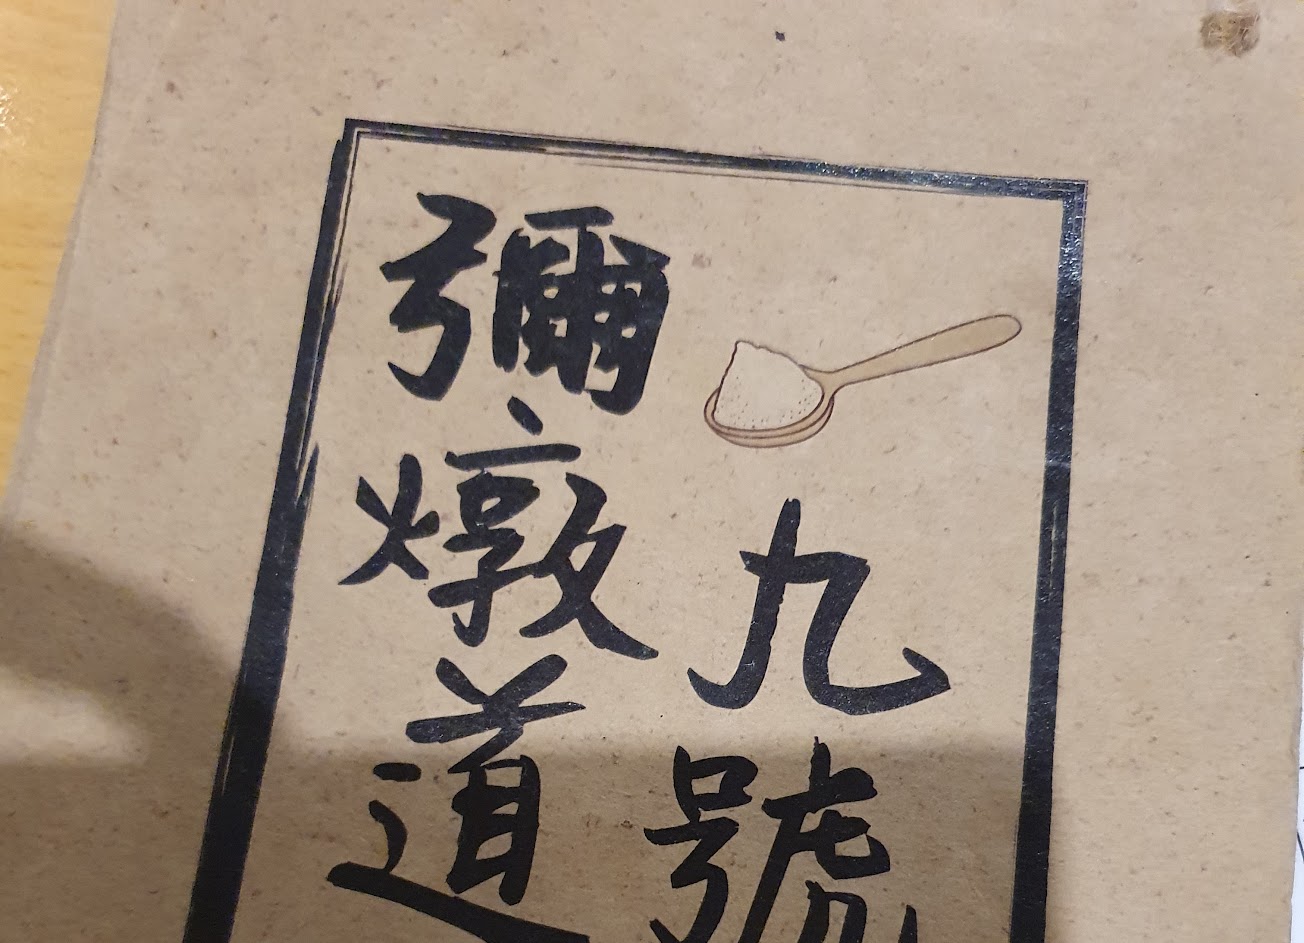 九號
彌敦道